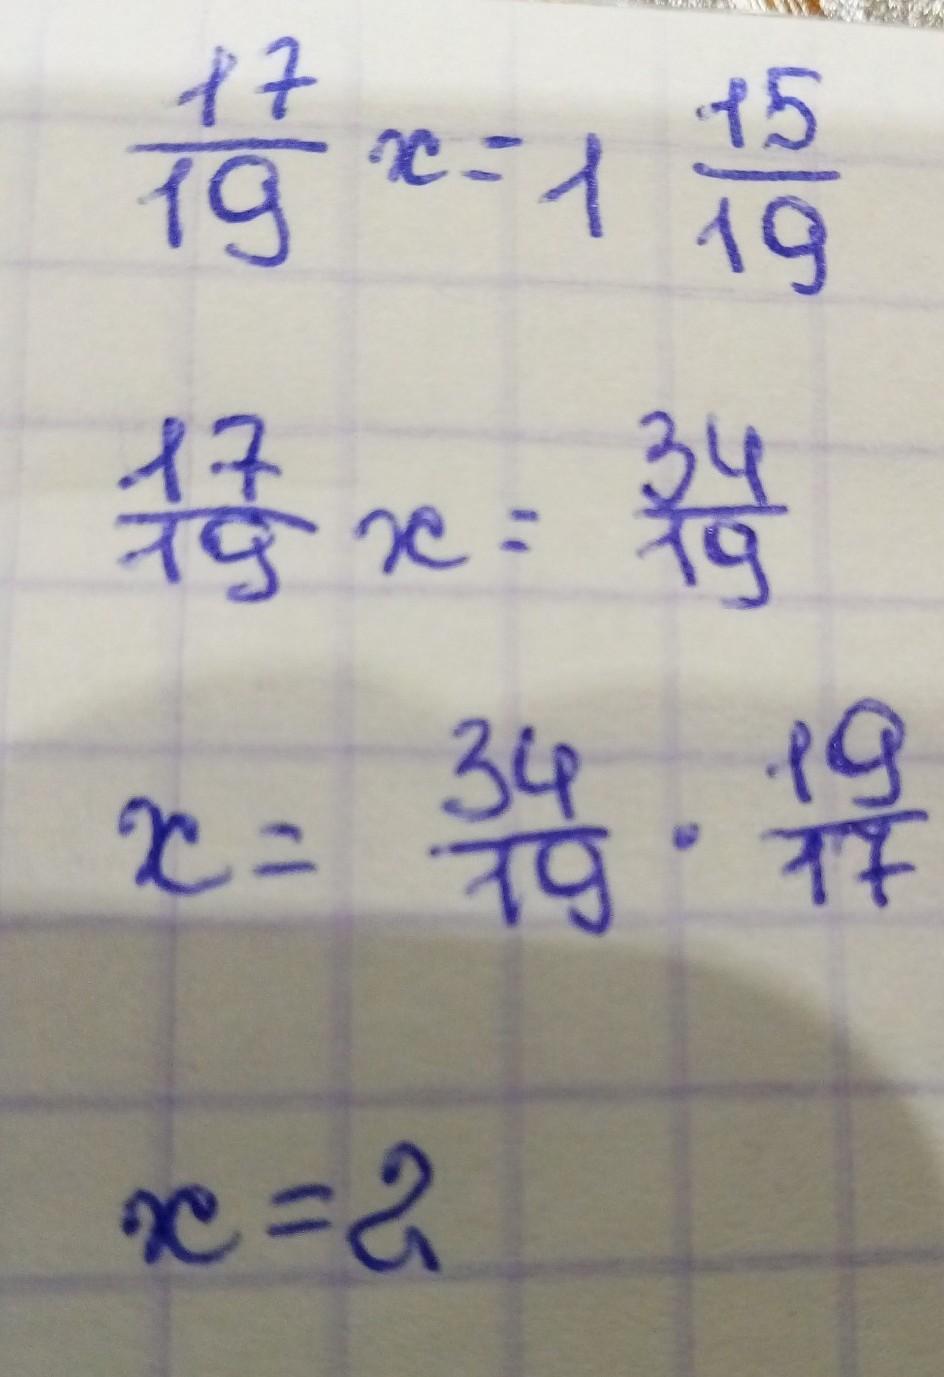 17/19 x = 1 15/19
17/19 x = 34/19
x = 34/19 · 19/17
x = 2